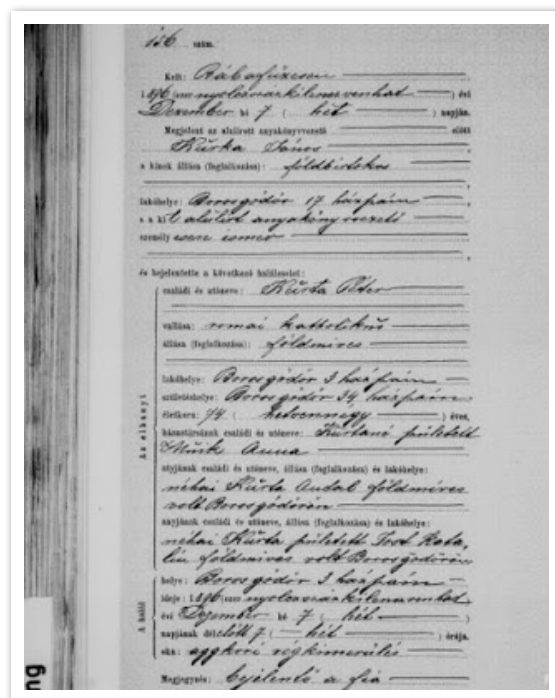 136 szám.
Kelt: Rábafüzesen
1896 (ezer nyolcszázkilencvenhat) évi
Dezember hó 7 ( hét ) napján.
Megjelent az alulirott anyakönyvvezető előtt
János
a kinek állása (foglalkozása): földbirtokos
lakóhelye: Borosgödör 17 házszám
s a kit alulirt anyakönyvvezető
személyesen ismer
és bejelentette a következő halálesetet:
családi és utóneve: Kürta Péter
vallása: romai katholikus
állása (foglalkozása): földmives
lakóhelye: Borosgödör 3 házszám
születéshelye: Borosgödör 34 házszám
életkora: 74 ( hetvennégy ) éves,
házastársának családi és utóneve: Kürtané született
Anna
atyjának családi és utóneve, állása (foglalkozása) és lakóhelye:
néhai Kürta földmives
volt Borosgödörön
anyjának családi és utóneve, állása (foglalkozása) és lakóhelye:
néhai Kürta született Kata,
lin földmives volt Borosgödörön
helye: Borosgödör 3 házszám
ideje: 1896 (ezer nyolcszázkilencvenhat)
évi Dezember hó 7 ( hét )
napjának délelőtt 7 ( hét ) órája.
oka: aggkori végkimerülés
Megjegyzés: bejelentő a fia
Az elhunyt
A halál
ng